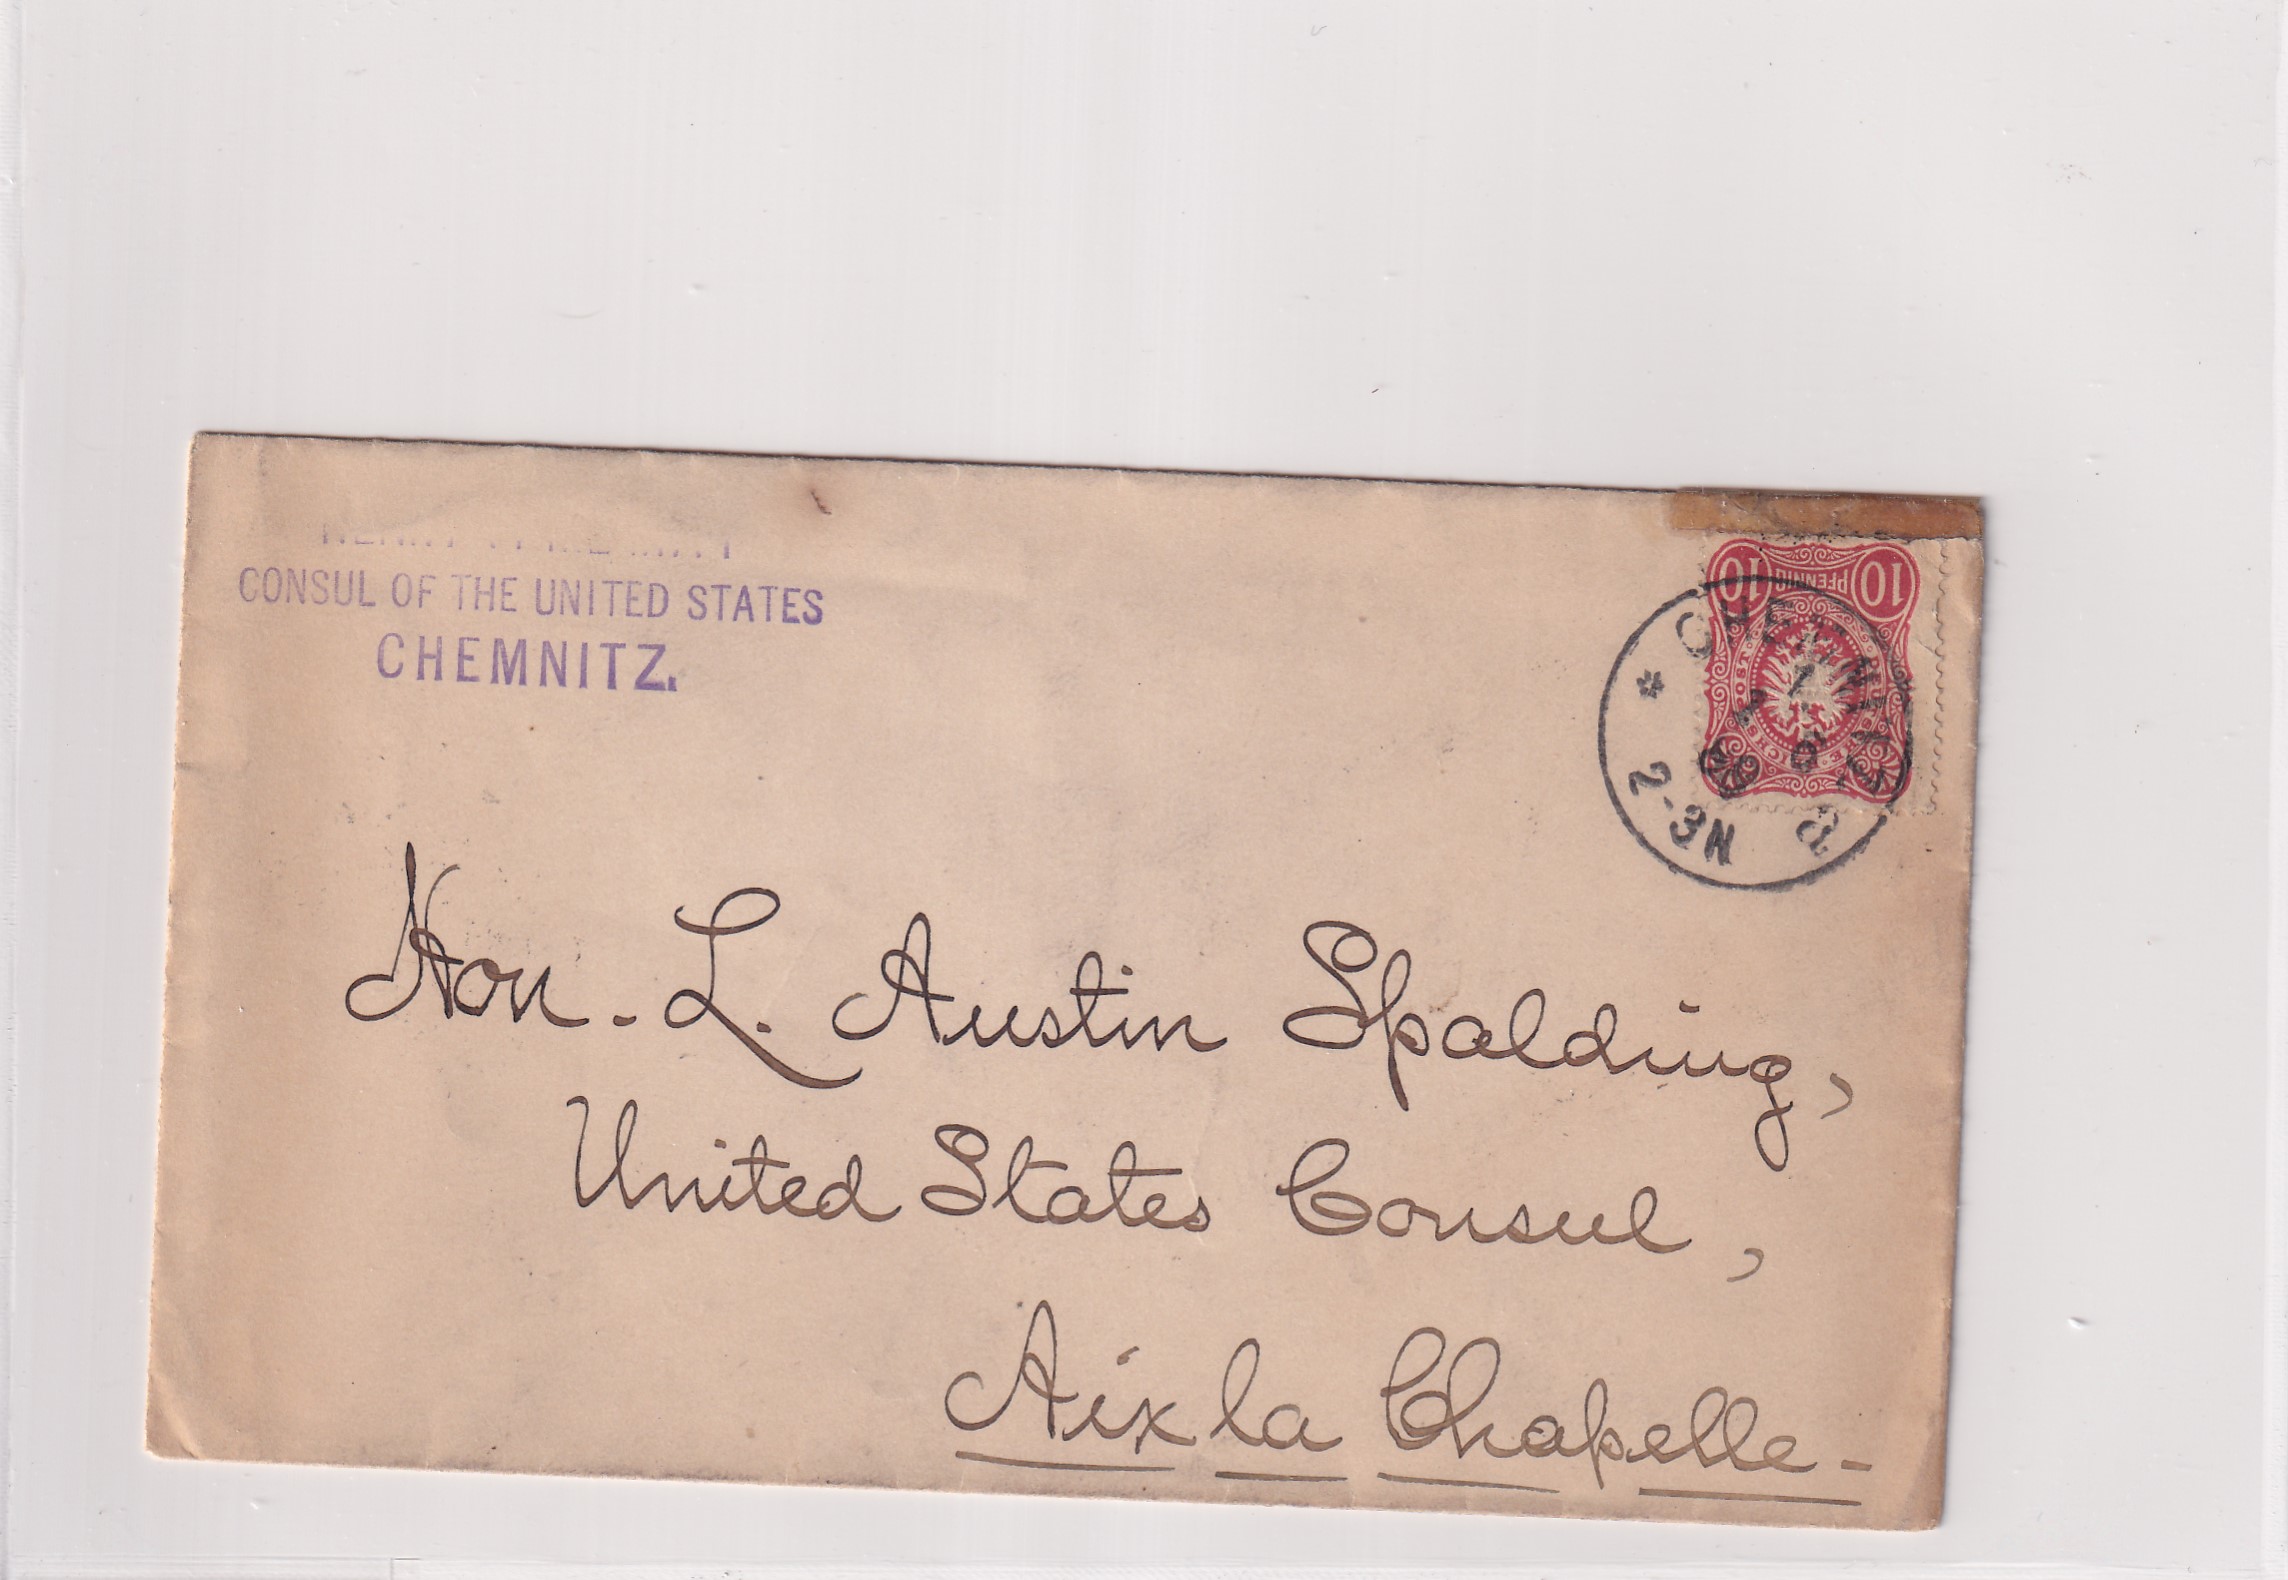 CONSUL OF THE UNITED STATES
CHEMNITZ.
10 PFENNIG 10
CHEMNITZ
2-3N
a
Hon. L. Austin Spalding,
United States Consul,
Aix la Chapelle -